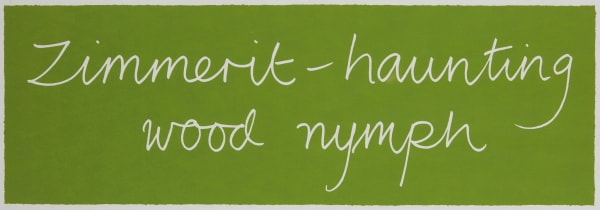 Zimmerit – haunting
wood nymph